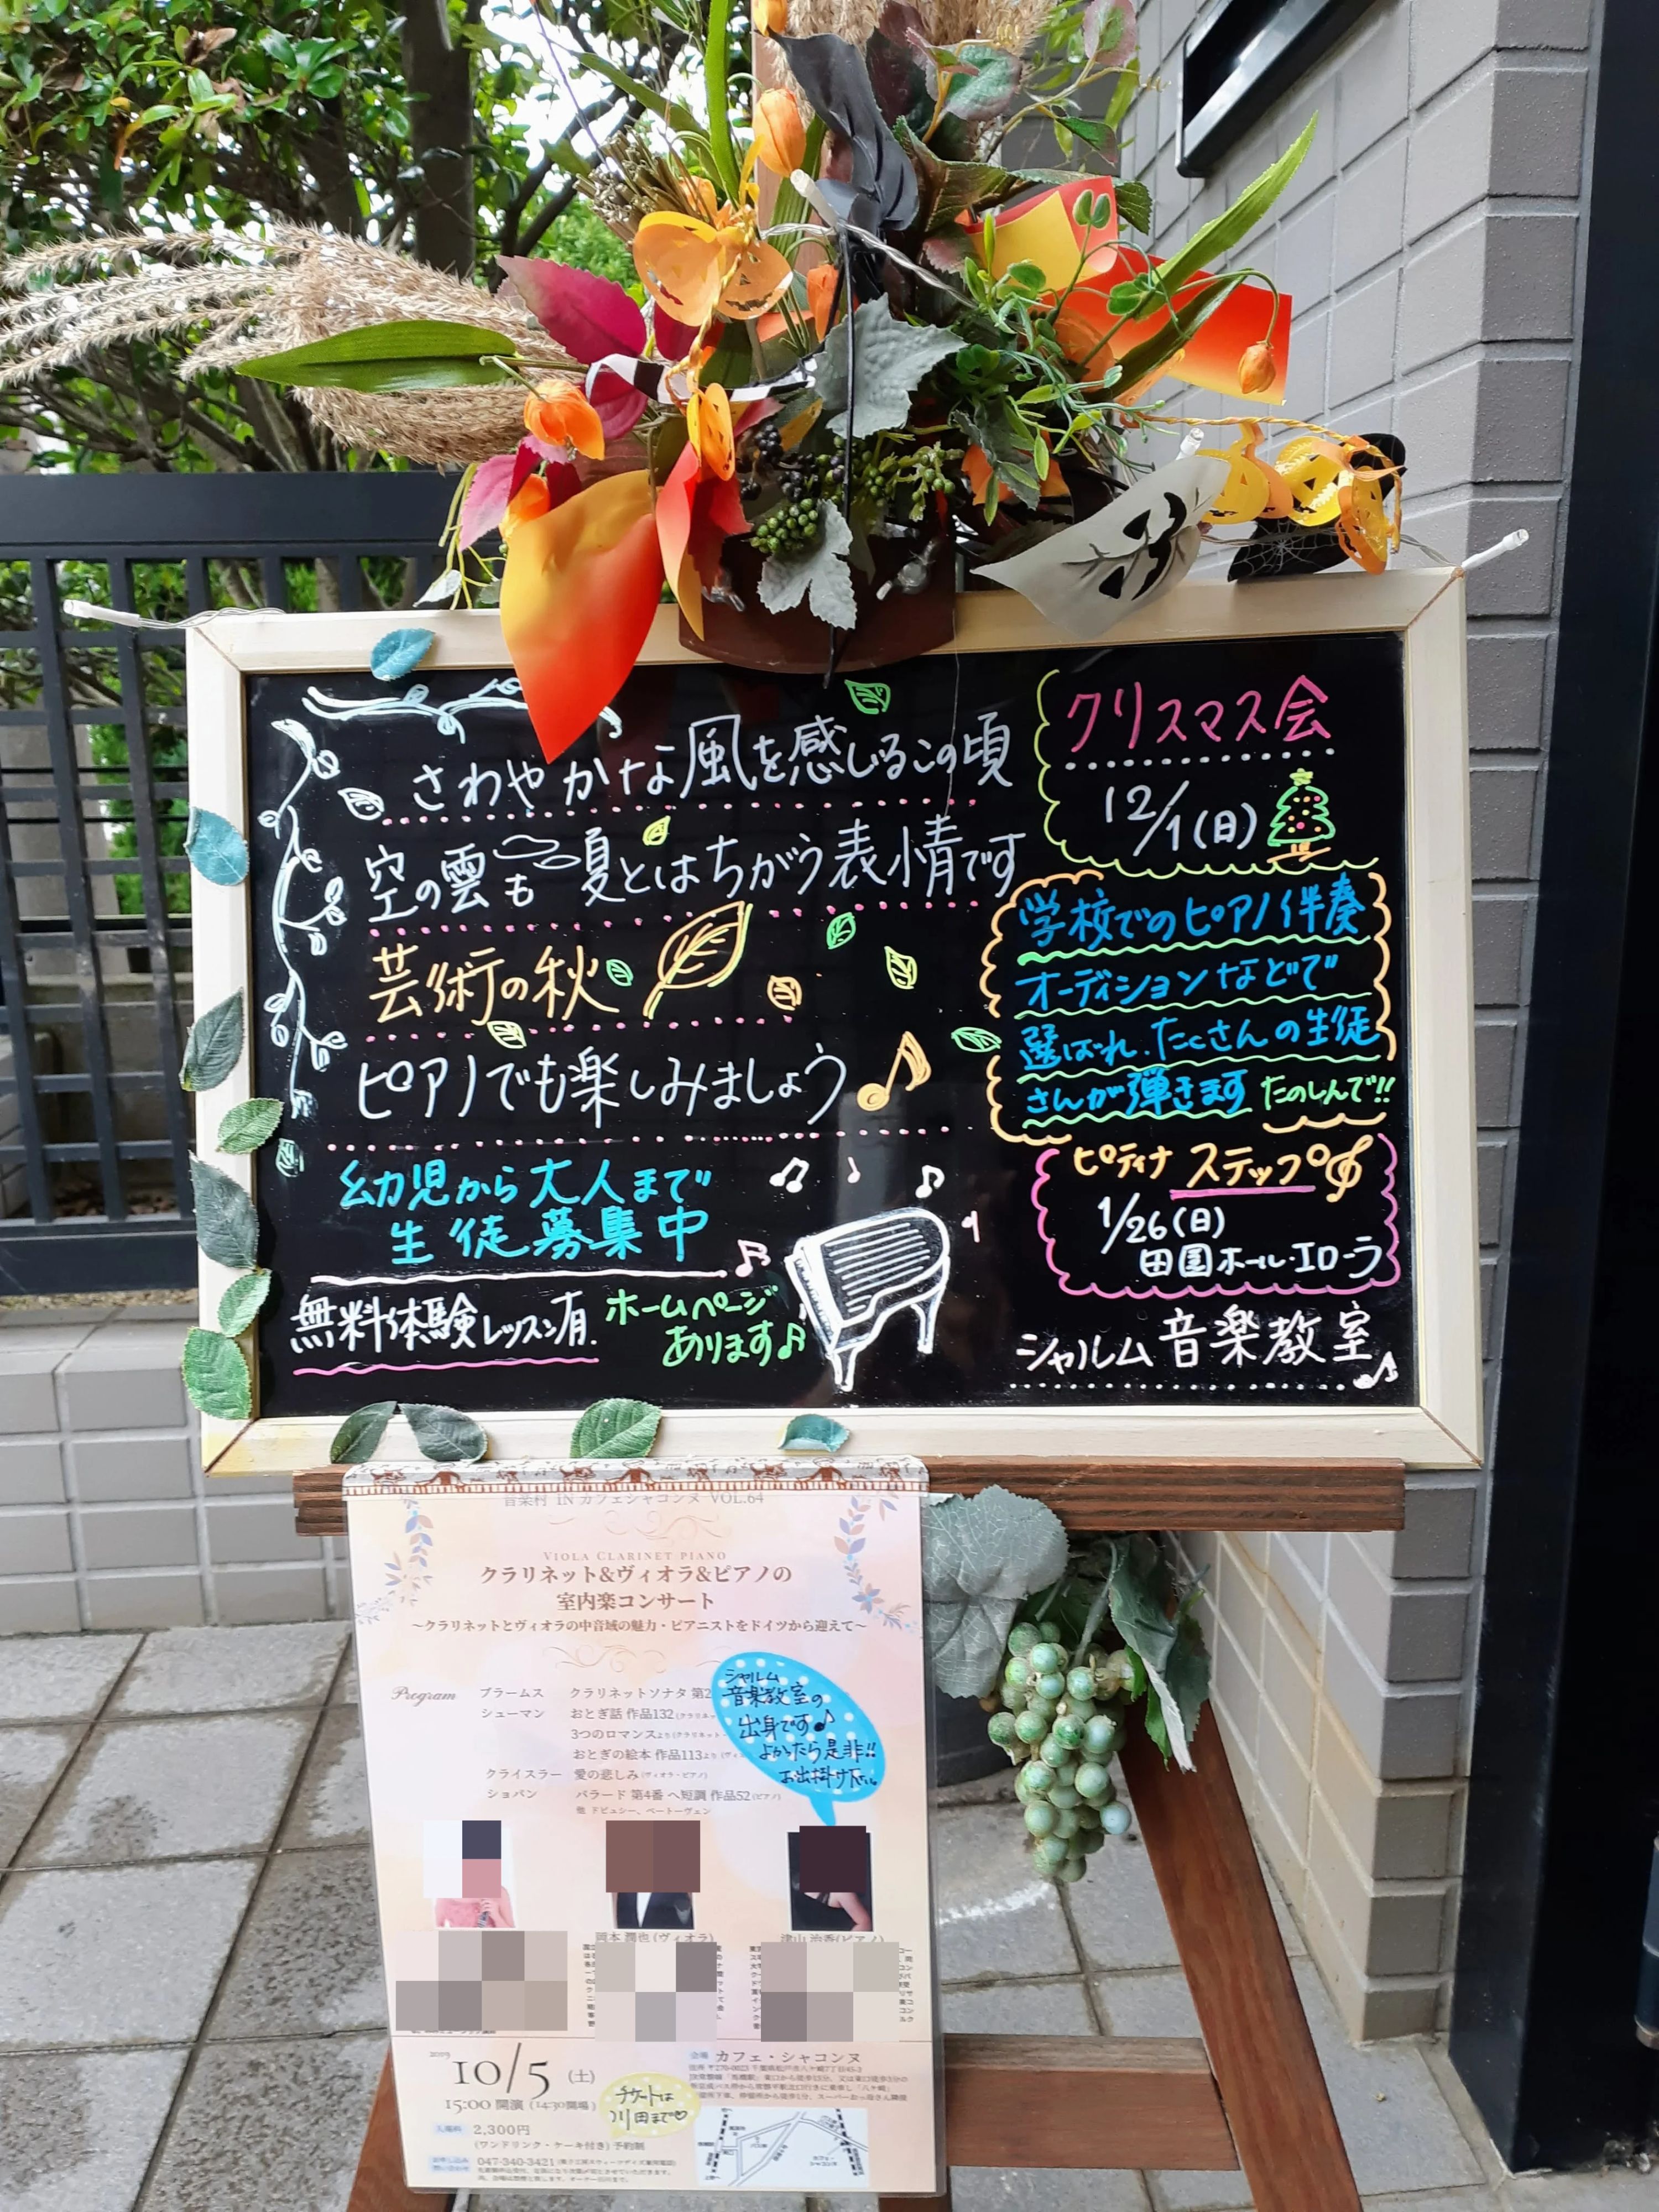 さわやかな風を感じるこの頃
空の雲も夏とはちがう表情です
芸術の秋
ピアノでも楽しみましょう
幼児から大人まで
生徒募集中
無料体験レッスン有.
ホームページ
あります
クリスマス会
12/1(日)
学校でのピアノ伴奏
オーディションなどで
選ばれ、たくさんの生徒
さんが弾きます たのしんで!!
ピティナ ステップ
1/26(日)
田園ホール・エローラ
シャルム 音楽教室
音楽村 IN カフェシャコンヌ VOL.64
VIOLA CLARINET PIANO
クラリネット&ヴィオラ&ピアノの
室内楽コンサート
~クラリネットとヴィオラの中音域の魅力・ピアニストをドイツから迎えて~
Program ブラームス クラリネットソナタ 第2
シューマン おとぎ話 作品132
3つのロマンスより
おとぎの絵本 作品113より
クライスラー 愛の悲しみ(ヴィオラ・ピアノ)
ショパン バラード 第4番 ヘ短調 作品52(ピアノ)
他 ドビュシー、ベートーヴェン
シャルム
音楽教室の
出身です
よかったら是非!!
お出掛け下さい
岡本 潤也 (ヴィオラ)
津山 治香(ピアノ)
2019
10/5 (土)
15:00 開演 (14:30開場)
入場料 2,300円
(ワンドリンク・ケーキ付き) 予約制
047-340-3421
チケットは
川田まで
会場 カフェ・シャコンヌ